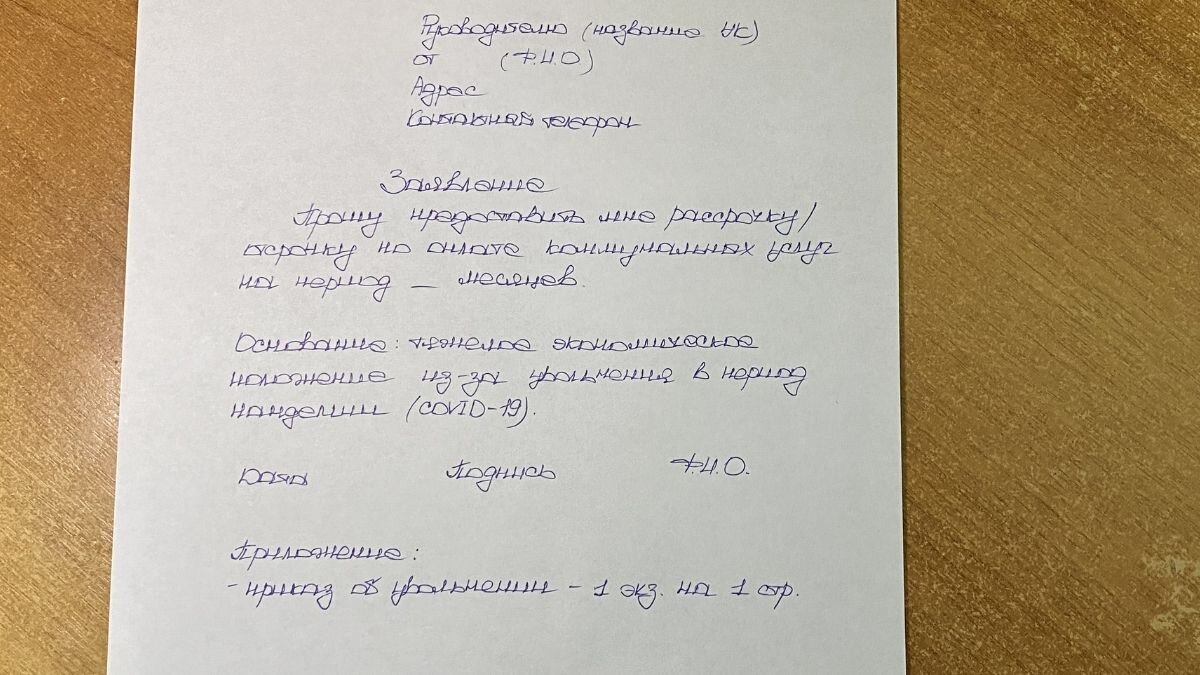 Руководителю (название УК)
от (Ф.И.О)
Адрес
Контактный телефон
Заявление
Прошу предоставить мне рассрочку/
отсрочку по оплате коммунальных услуг
на период _ месяцев.
Основание: тяжелое экономическое
положение из-за увольнения в период
пандемии (COVID-19).
Дата Подпись Ф.И.О.
Приложение:
- приказ об увольнении - 1 экз. на 1 стр.